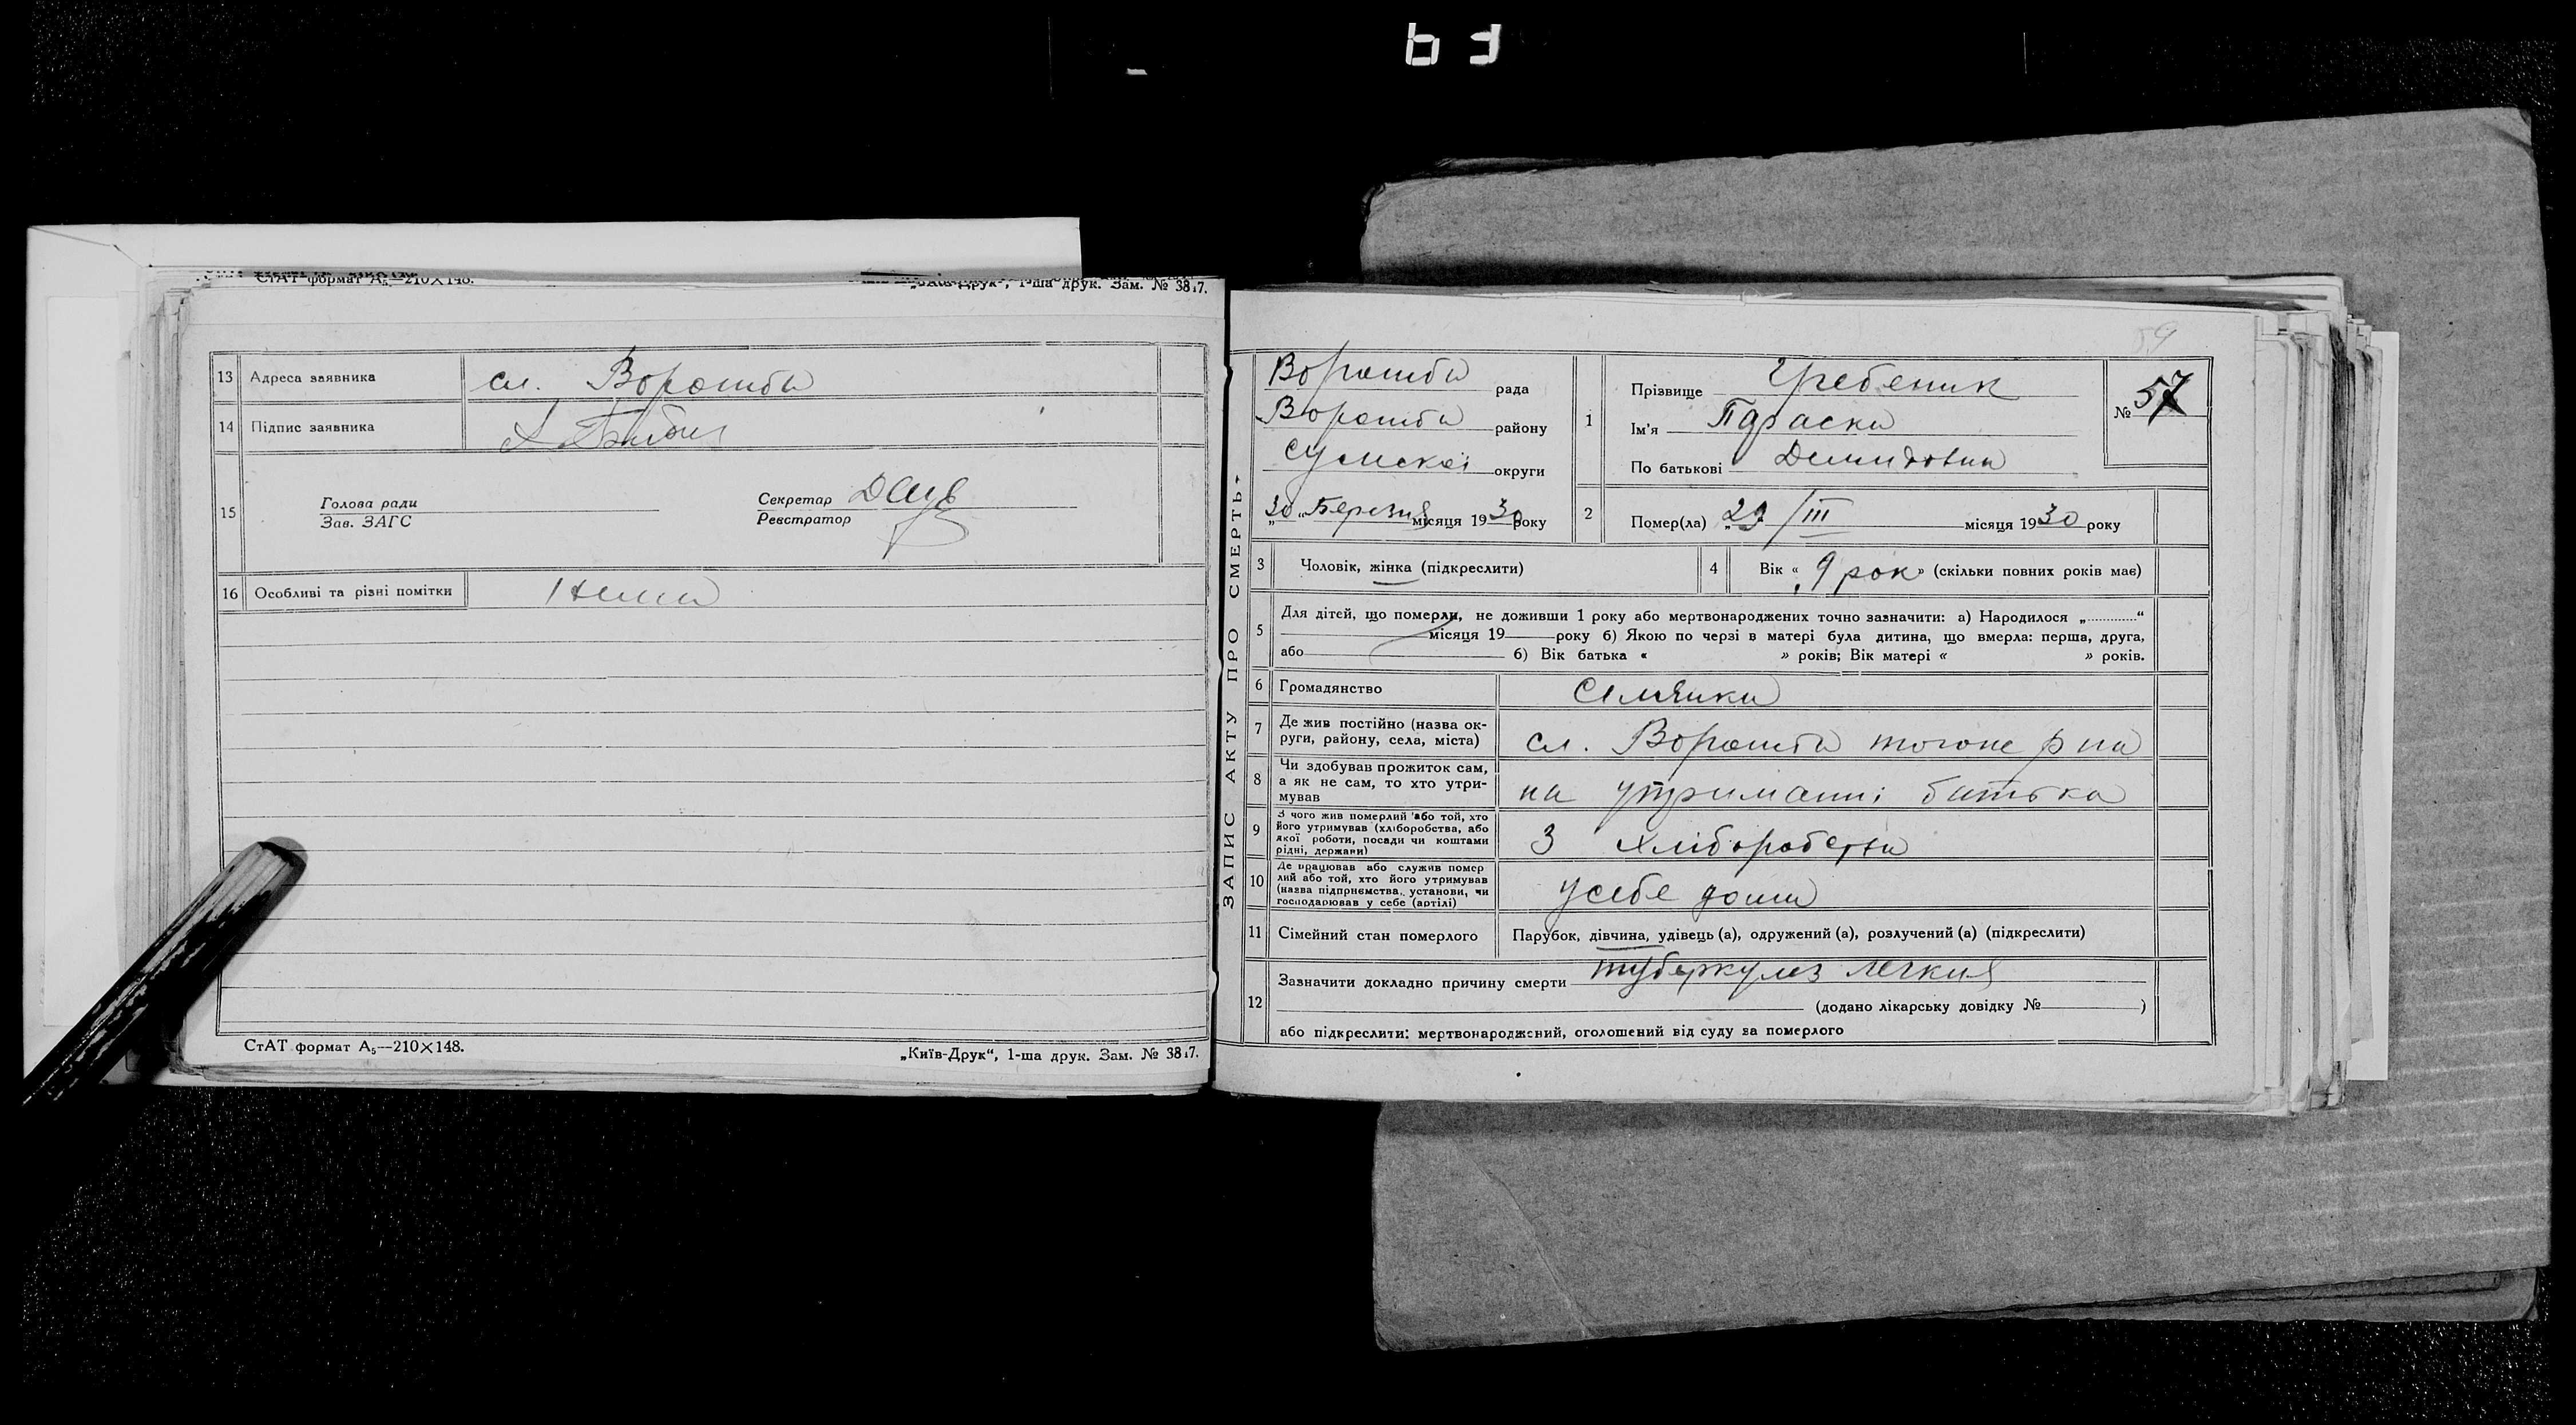 СтАТ формат А₅—210×148.
друк. Зам. № 3817.
13 Адреса заявника сл. Ворожба
14 Підпис заявника
15 Голова ради
Зав. ЗАГС
Секретар
Реєстратор
16 Особливі та різні помітки Нема
СтАТ формат А₅—210×148.
„Київ-Друк“, 1-ша друк. Зам. № 3817.
ЗАПИС АКТУ ПРО СМЕРТЬ
59
Ворожба рада
Ворожба району
Сумскої округи
„30“ Березня місяця 1930 року
1 Прізвище Гребеник
Ім'я Параска
По батькові Демидовна
№ 57
2 Помер(ла) „29 /III місяця 1930 року
3 Чоловік, жінка (підкреслити)
4 Вік « 9 рок » (скільки повних років має)
5 Для дітей, що померли, не доживши 1 року або мертвонароджених точно зазначити: а) Народилося „............“
місяця 19 року б) Якою по черзі в матері була дитина, що вмерла: перша, друга,
або б) Вік батька « » років; Вік матері « » років.
6 Громадянство
7 Де жив постійно (назва ок-
руги, району, села, міста) сл. Ворожба тогоже р на
8 Чи здобував прожиток сам,
а як не сам, то хто утри-
мував на утриманні батька
9 З чого жив померлий або той, хто
його утримував (хліборобства, або
якої роботи, посади чи коштами
рідні, держави) З хліборобства
10 Де працював або служив помер
лий або той, хто його утримував
(назва підприємства, установи, чи
господарював у себе (артілі) у себе дома
11 Сімейний стан померлого Парубок, дівчина, удівець (а), одружений (а), розлучений (а) (підкреслити)
12 Зазначити докладно причину смерти туберкулез легкия
(додано лікарську довідку № )
або підкреслити: мертвонароджений, оголошений від суду за померлого